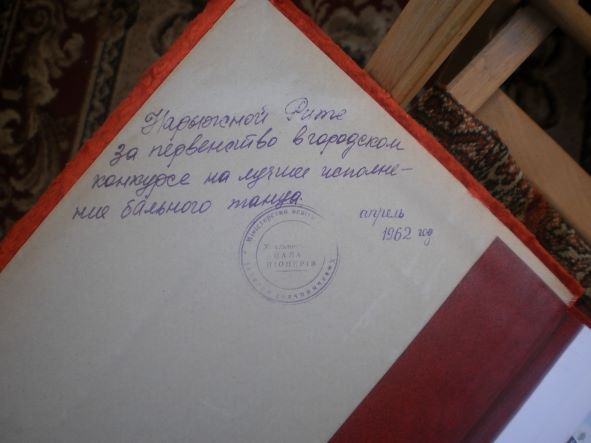 Нарыжной Рите
За первенство в городском
конкурсе на лучшее исполне-
ние бального танца.
апрель
1962 год
Міністерство освіти
ПІОНЕРІВ